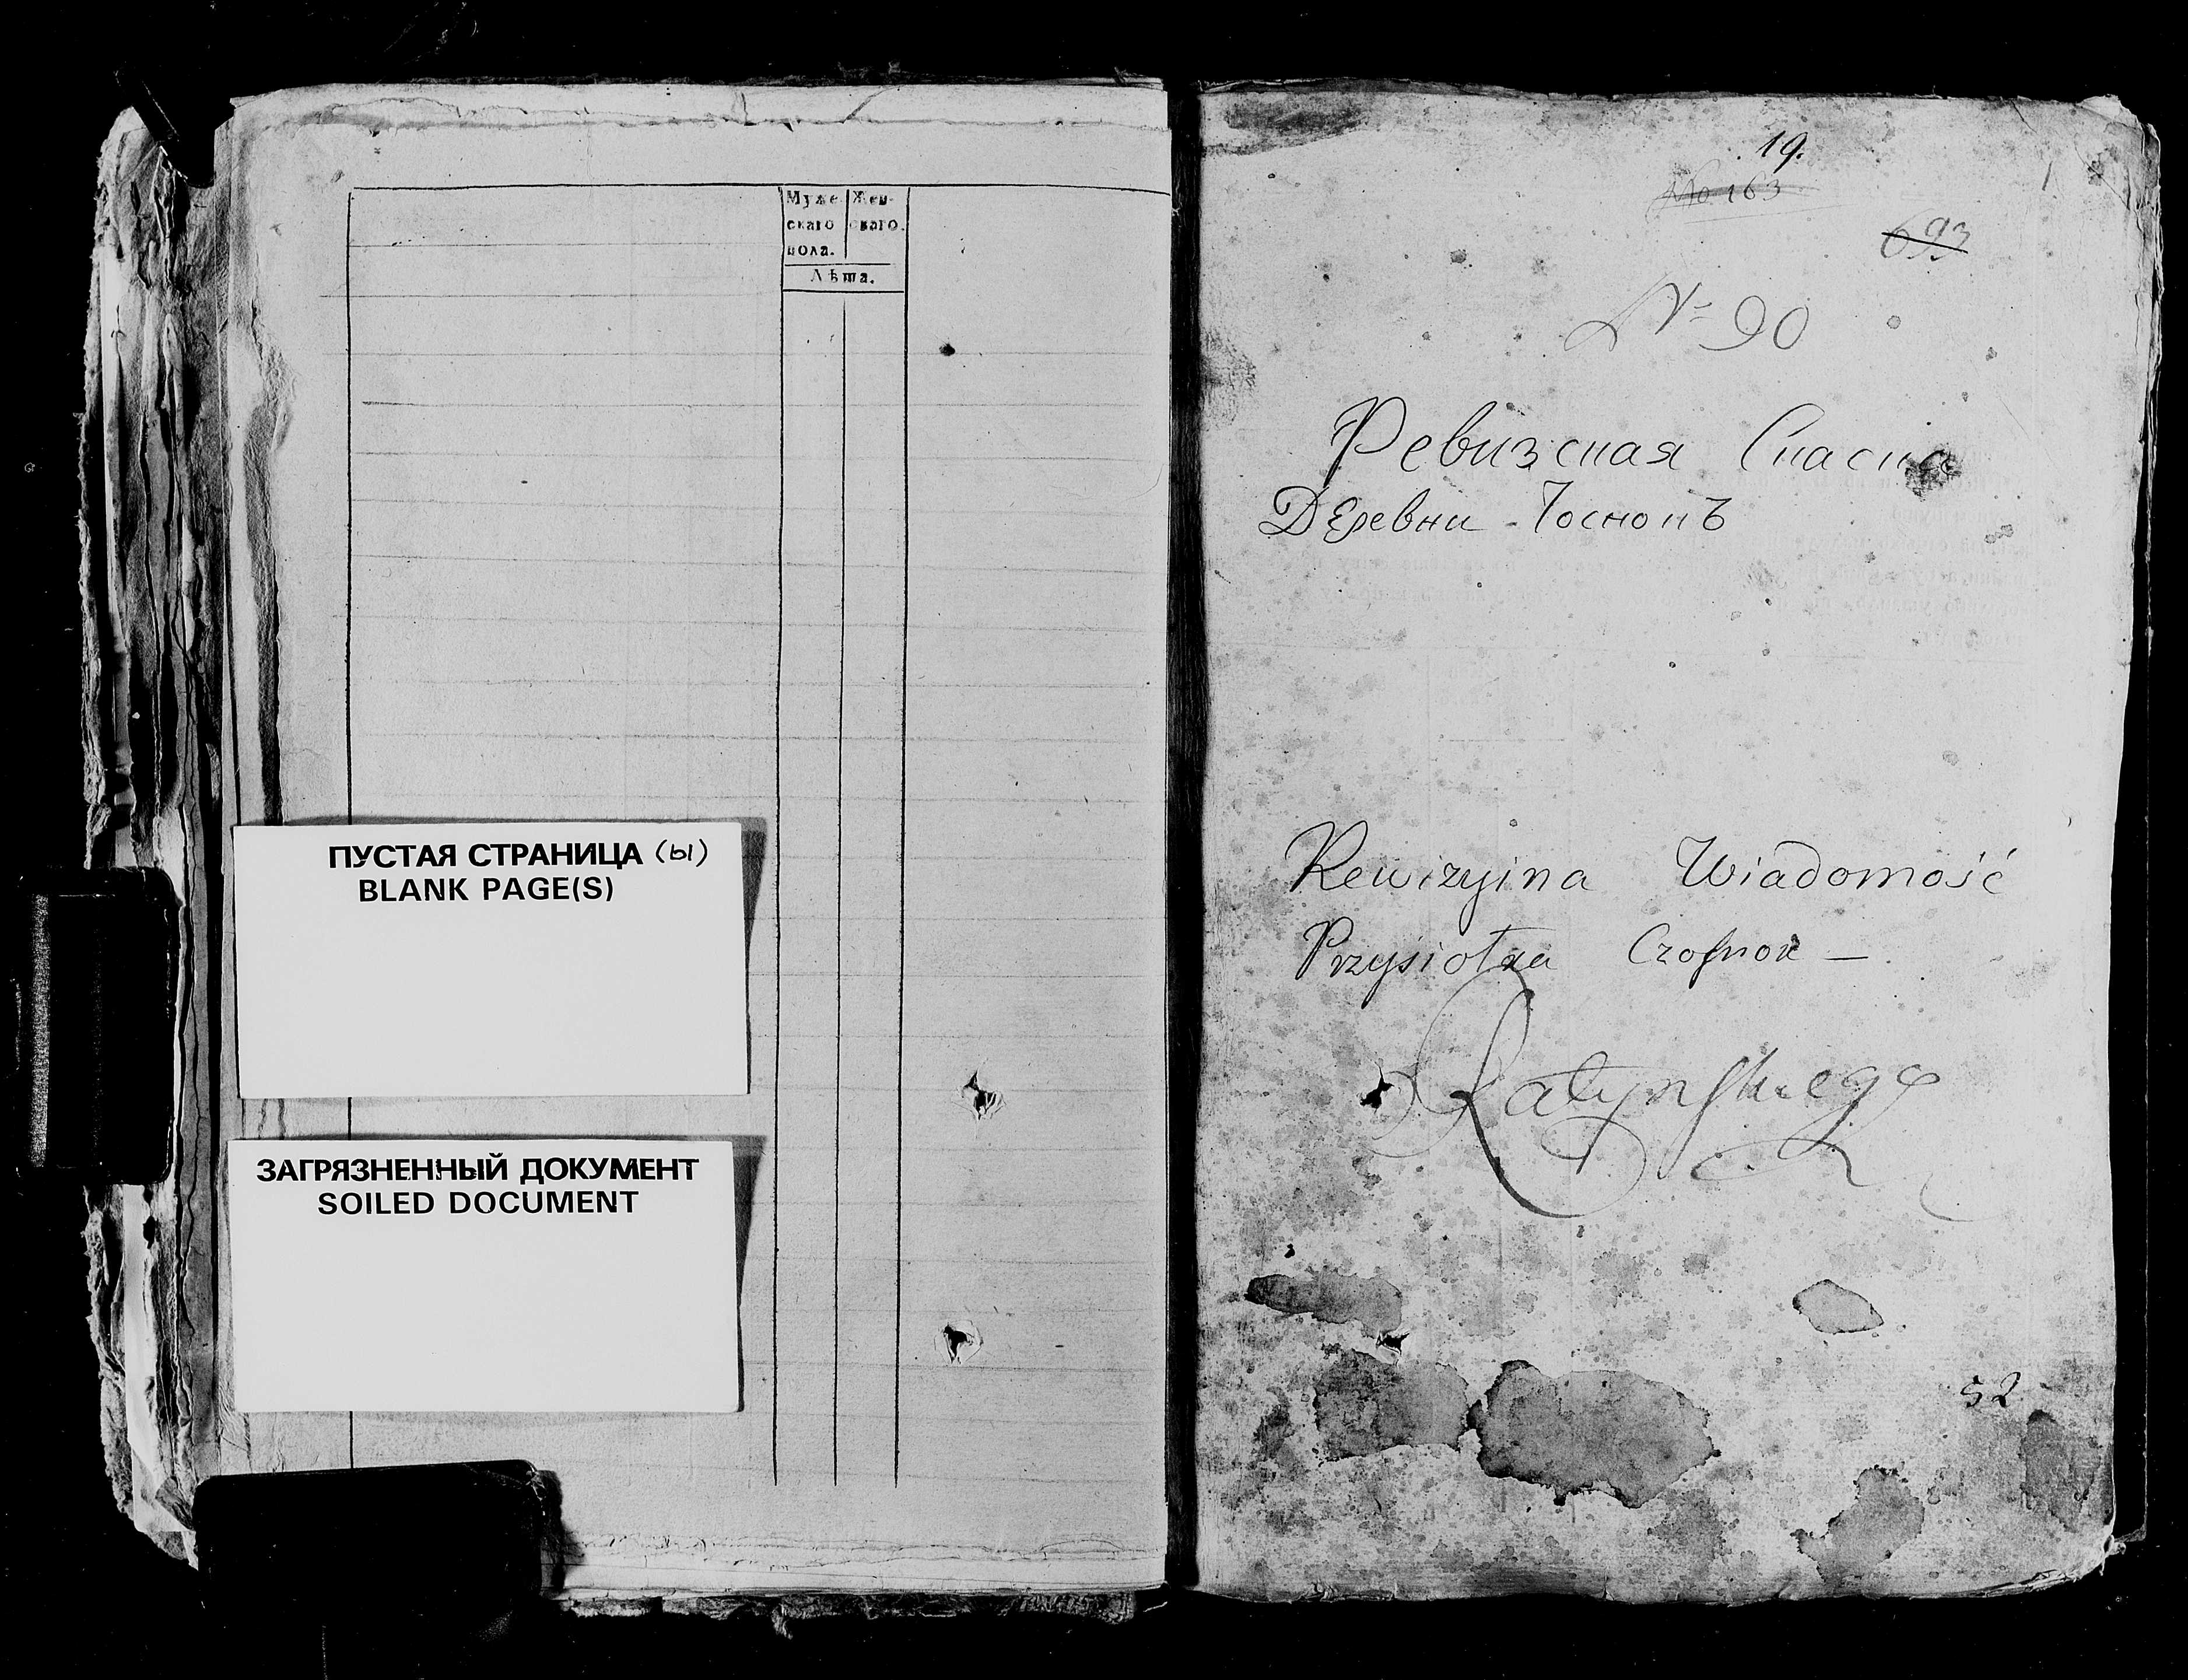 Муже-
скаго
пола.
Жен-
скаго.
Лѣта.
ПУСТАЯ СТРАНИЦА (ы)
BLANK PAGE(S)
ЗАГРЯЗНЕННЫЙ ДОКУМЕНТ
SOILED DOCUMENT
19.
No 163
1
693
№ 90
Ревизская Скаска
Деревни Чоснокъ
Rewizyina Wiadomość
Przysiołka Czosnok —
Ratynskiego
52